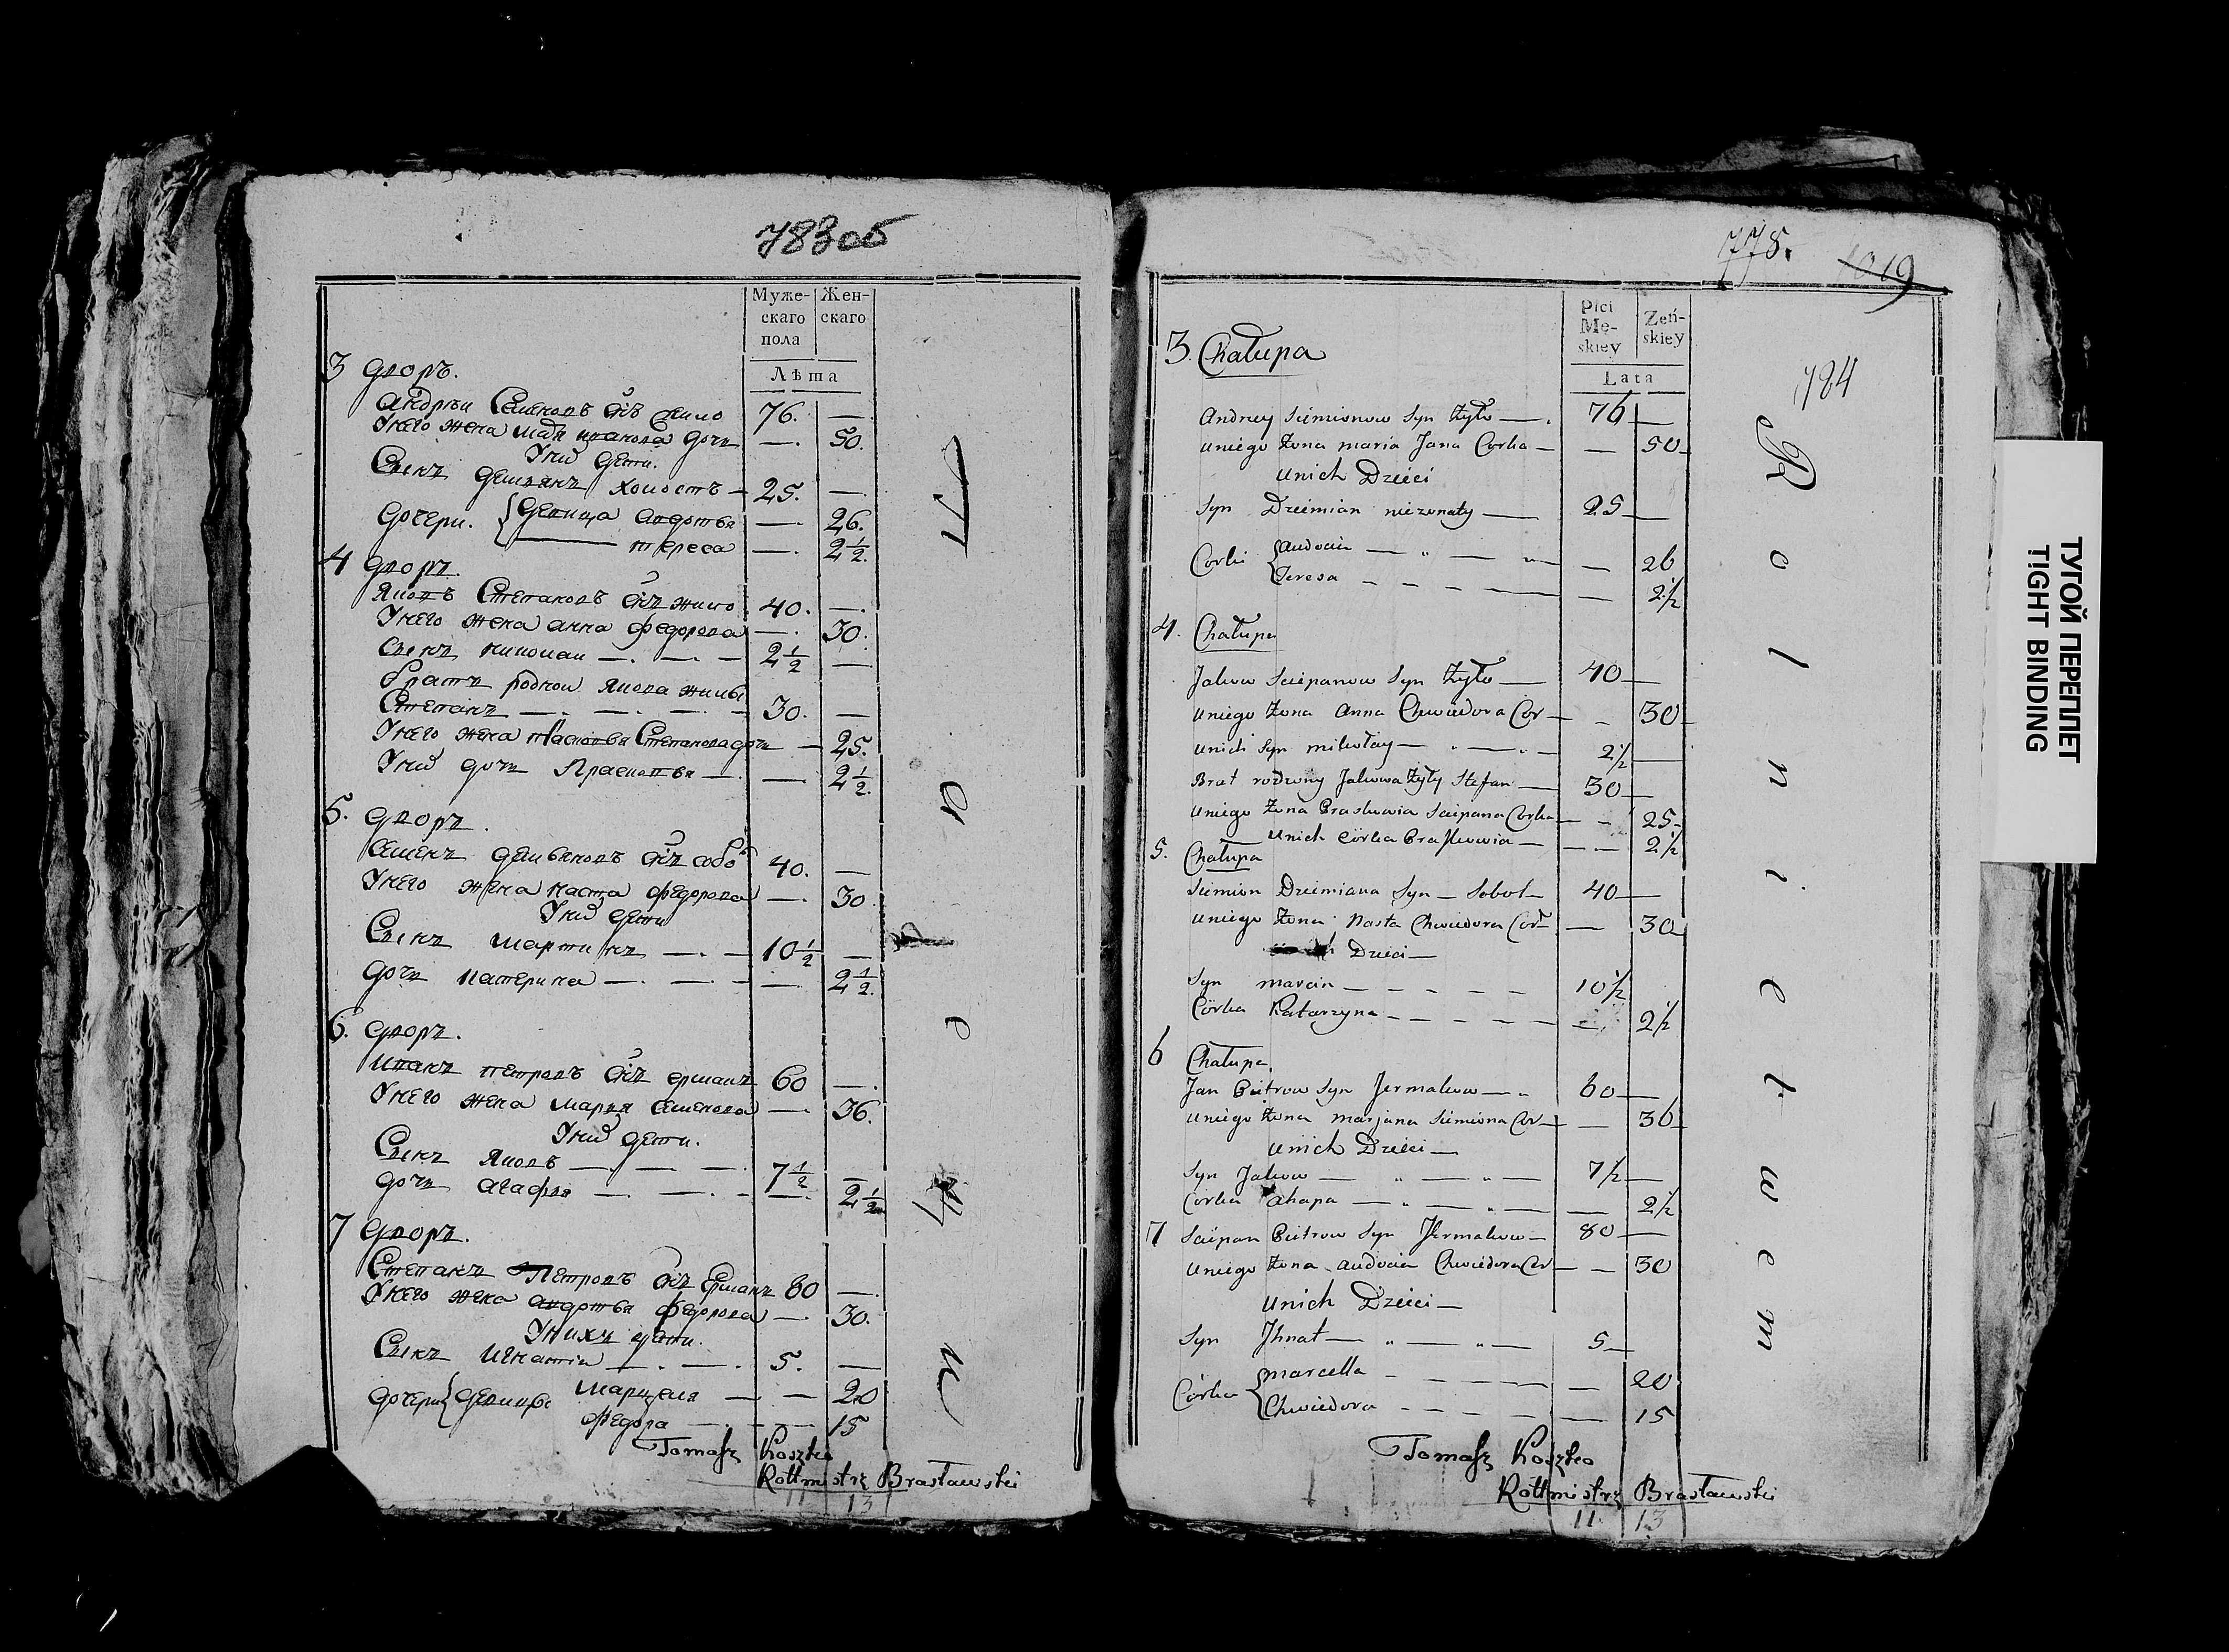 783об
Муже-
скаго
пола
Жен-
скаго
Лѣта
3 дворъ.
андрѣи Семеновъ снъ жило 76. —
Унего жена иванова дочь — 50.
Уних дети.
Сынъ демьянъ холостъ — 25. —
дочери. { девица авдотья — 26.
— тереса — 2 1/2.
4 дворъ.
Яковъ Степановъ снъ жило 40. —
Унего жена анна федорова — 30.
Сынъ николаи — 2 1/2 —
братъ родной Якова жилы
Степанъ — 30. —
Унего жена Степанова дочь — 25.
Уних дочь Прасковья — 2 1/2.
5. дворъ.
Семенъ демьяновъ снъ собо 40. —
Унего жена наста федорова — 30.
Уних дети
Сынъ мартинъ — 10 1/2 —
дочь катерина — 2 1/2.
6. дворъ.
Иванъ петровъ снъ ермакъ 60 —
Унего жена марья семенова — 36.
Уних дети.
Сынъ Яковъ — 7 1/2 —
дочь агафья — 2 1/2
7 дворъ.
Степанъ Петровъ снъ Ермакъ 80 —
Унего жена авдотья федорова — 30.
Унихъ дети.
Сынъ Игнатiи — 5. —
дочери { девицы марцеля — 20
федора — 15
Tomasz Koszko
Rottmistrz Brasławski
11 13
778.
1019
784
Płci
Mę-
skiey
Żeń-
skiey
Lata
3. Chałupa
Andrey Siemionow Syn Żyło — 76 —
uniego Żona maria Jana Corka — 50
unich Dzieci
Syn Dziemian nieżonaty — 25 —
Corki { Audocia — 26
Teresa — 2 1/2
4. Chałupa
Jakow Sciepanow Syn Żyło — 40 —
uniego Żona Anna Chwiedora Cor — 30
unich Syn mikołay — 2 1/2 —
Brat rodzony Jakowa Żyły Stefan — 30 —
uniego Żona Praskowia Sciepana Corka — 25
unich Córka Praskowia — 2 1/2
5. Chałupa
Siemion Dziemiana Syn — Sobol — 40 —
uniego Żona Nasta Chwiedora Cor — 30
Dzieci —
Syn marcin — 10 1/2
Córka Katarzyna — 2 1/2
6 Chałupa.
Jan Pietrow Syn Jermakow — 60 —
uniego Żona marjana Siemiona Cor — 36
unich Dzieci —
Syn Jakow — 7 1/2 —
Corka ahapa — 2 1/2
7 Sciepan Pietrow Syn Jermakow — 80 —
uniego Żona audocia Chwiedora Cor — 30
unich Dzieci —
Syn Jhnat — 5 —
Córka { marcella — 20
Chwiedora — 15
Tomasz Koszko
Rottmistrz Brasławski
11. 13
R o l n i c t w e m
ТУГОЙ ПЕРЕПЛЕТ
TIGHT BINDING